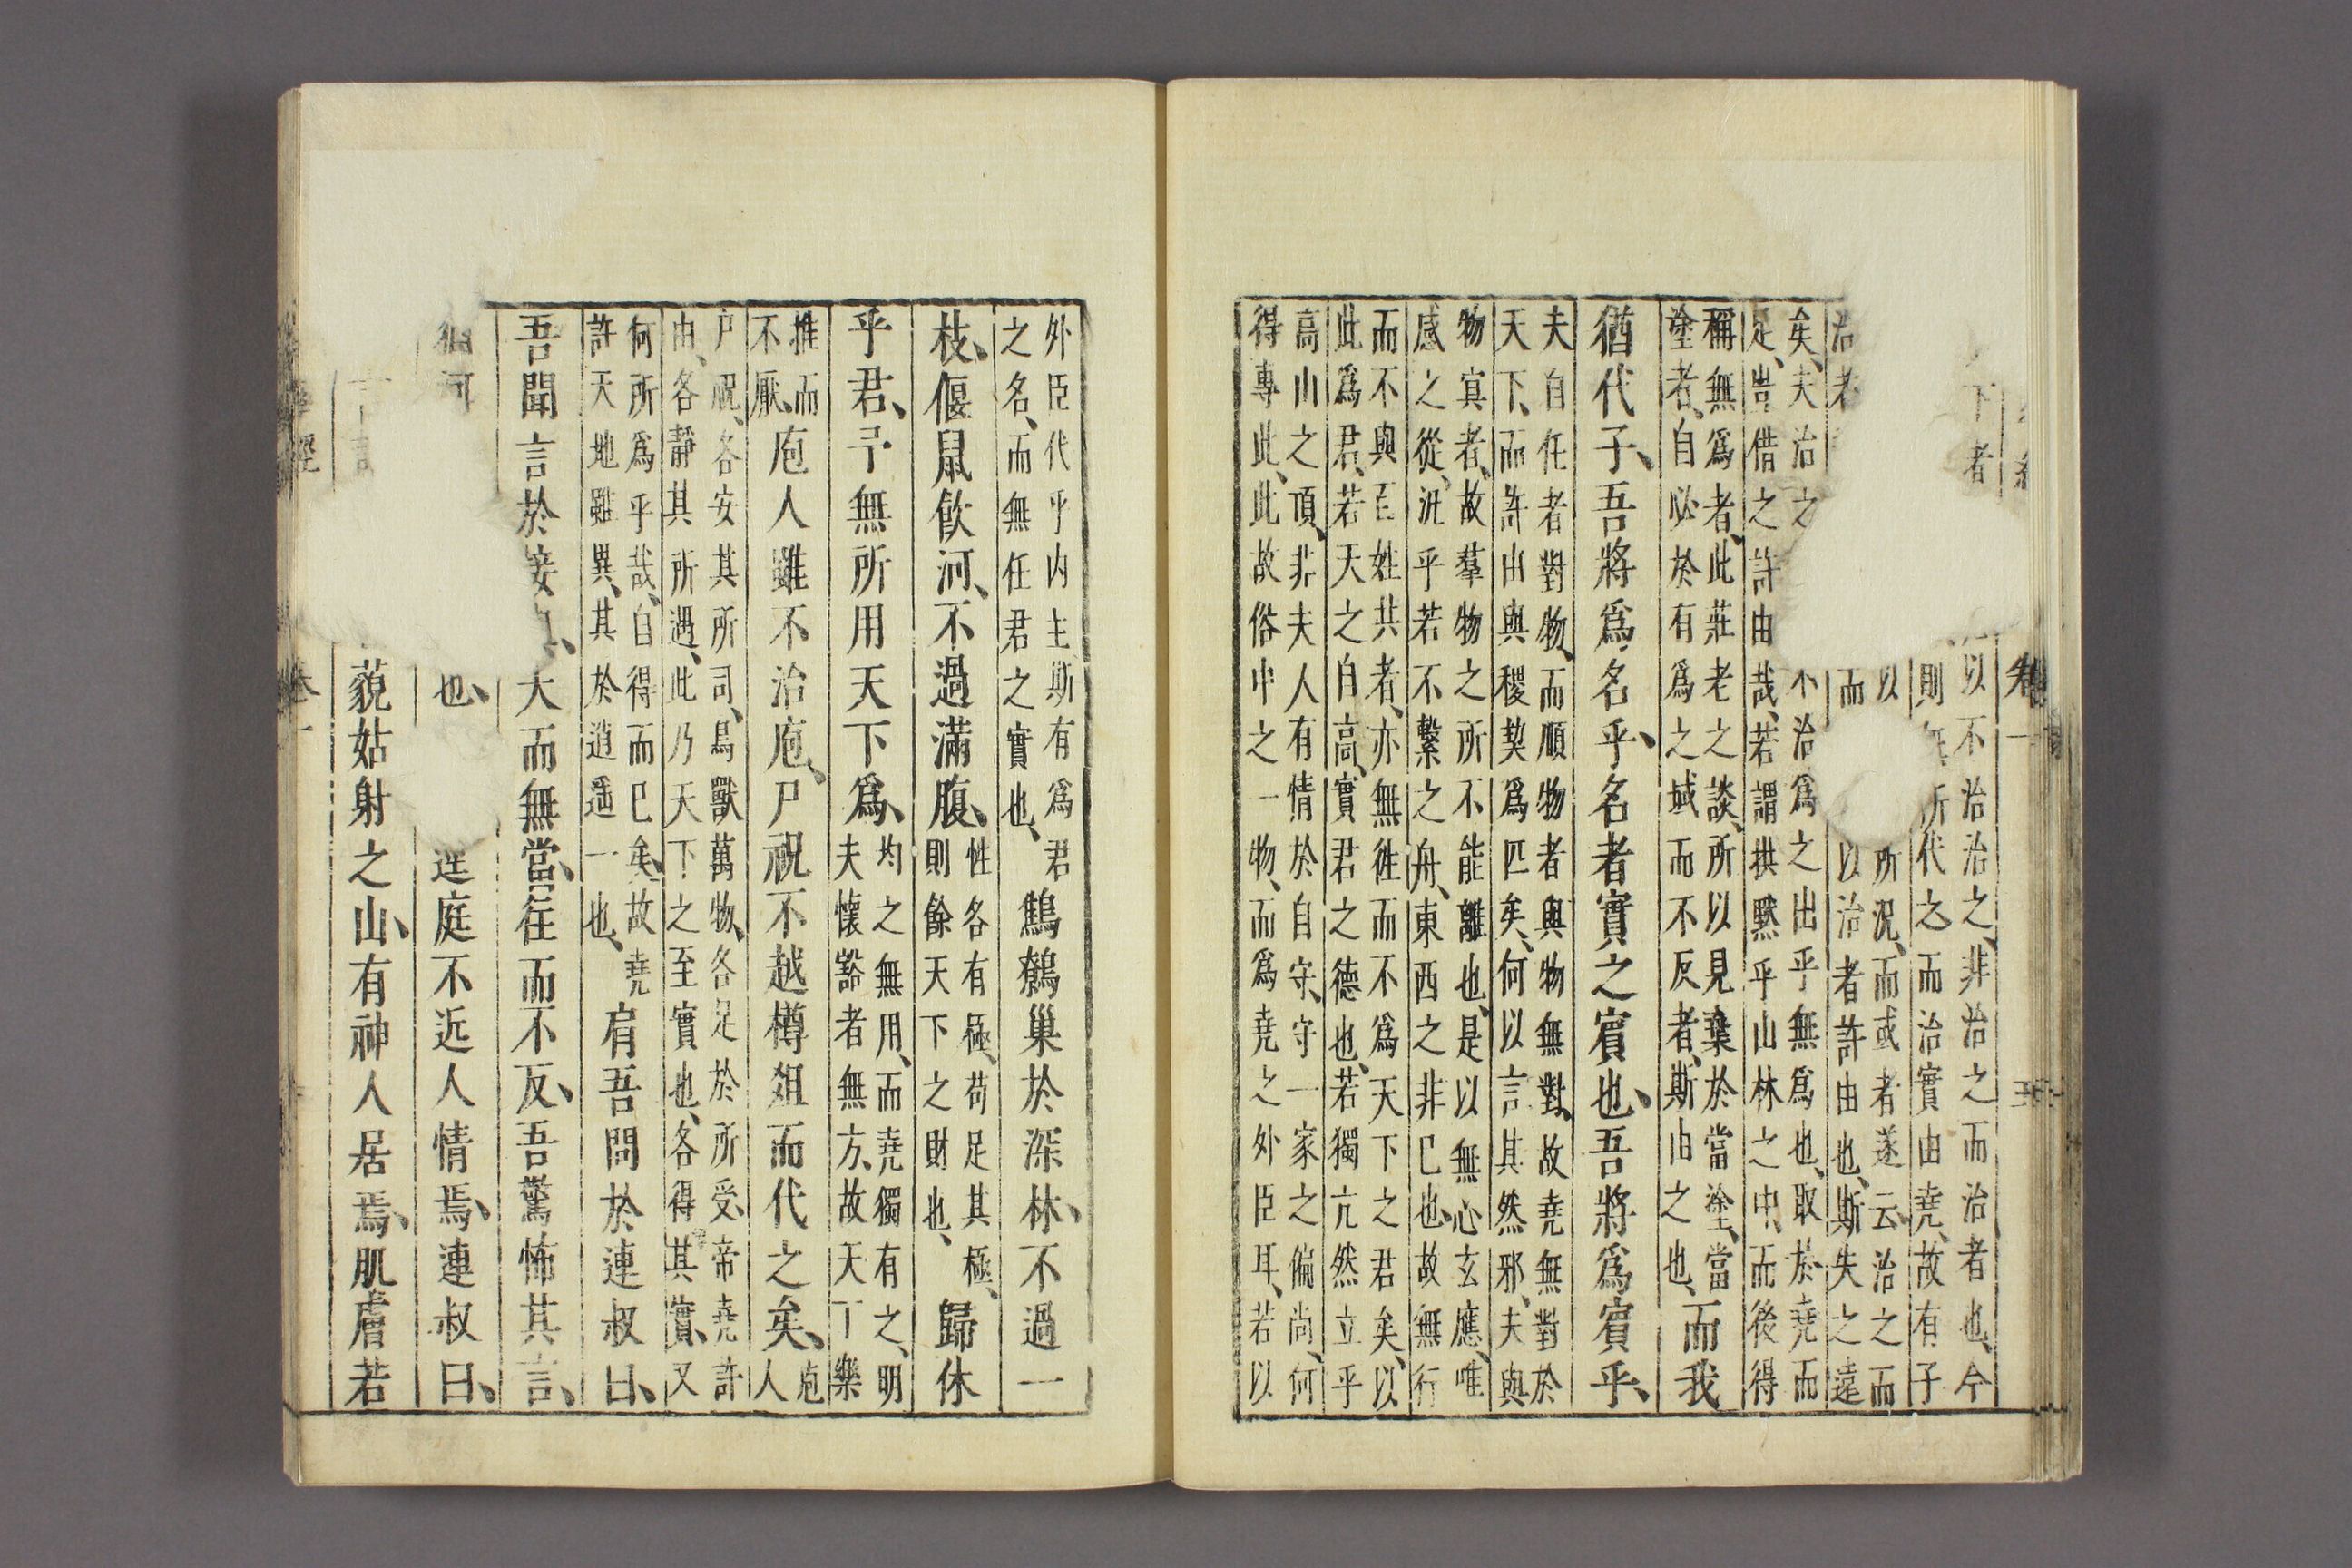 下者
以不治治之、非治之而治者也、今
則無所代之、而治實由堯、故有子
以所況、而或者遂云、治之而
治者
而以治者許由也、斯失之遠
矣、夫治之不治爲之出乎無爲也、取於堯而
足、豈借之許由哉、若謂拱默乎山林之中、而後得
稱無爲者、此莊老之談、所以見棄於當塗、當
塗者、自必於有爲之域而不反者、斯由之也、而我
猶代子、吾將爲名乎、名者實之賓也、吾將爲賓乎、
夫自任者對物、而順物者與物無對、故堯無對於
天下、而許由與稷契爲匹矣、何以言其然邪、夫與
物冥者、故羣物之所不能離也、是以無心玄應、唯
感之從、汎乎若不繫之舟、東西之非已也、故無行
而不與百姓共者、亦無往而不爲天下之君矣、以
此爲君、若天之自高、實君之德也、若獨亢然立乎
高山之頂、非夫人有情於自守、守一家之偏尚、何
得專此、此故俗中之一物、而爲堯之外臣耳、若以
卷一
外臣代乎内主、斯有爲君
之名、而無任君之實也、鷦鷯巢於深林、不過一
枝、偃鼠飲河、不過滿腹、性各有極、苟足其極、
則餘天下之財也、歸休
乎君、予無所用天下爲、均之無用、而堯獨有之、明
夫懷豁者無方、故天下樂
推而
不厭、庖人雖不治庖、尸祝不越樽俎而代之矣、庖
人
尸祝、各安其所司、鳥獸萬物、各足於所受、帝堯許
由、各靜其所遇、此乃天下之至實也、各得其實、又
何所爲乎哉、自得而已矣、故堯
許天地雖異、其於逍遥一也、肩吾問於連叔曰、
吾聞言於接 大而無當、往而不反、吾驚怖其言、
猶河 也、 逕庭不近人情焉、連叔曰、
藐姑射之山、有神人居焉、肌膚若
卷一